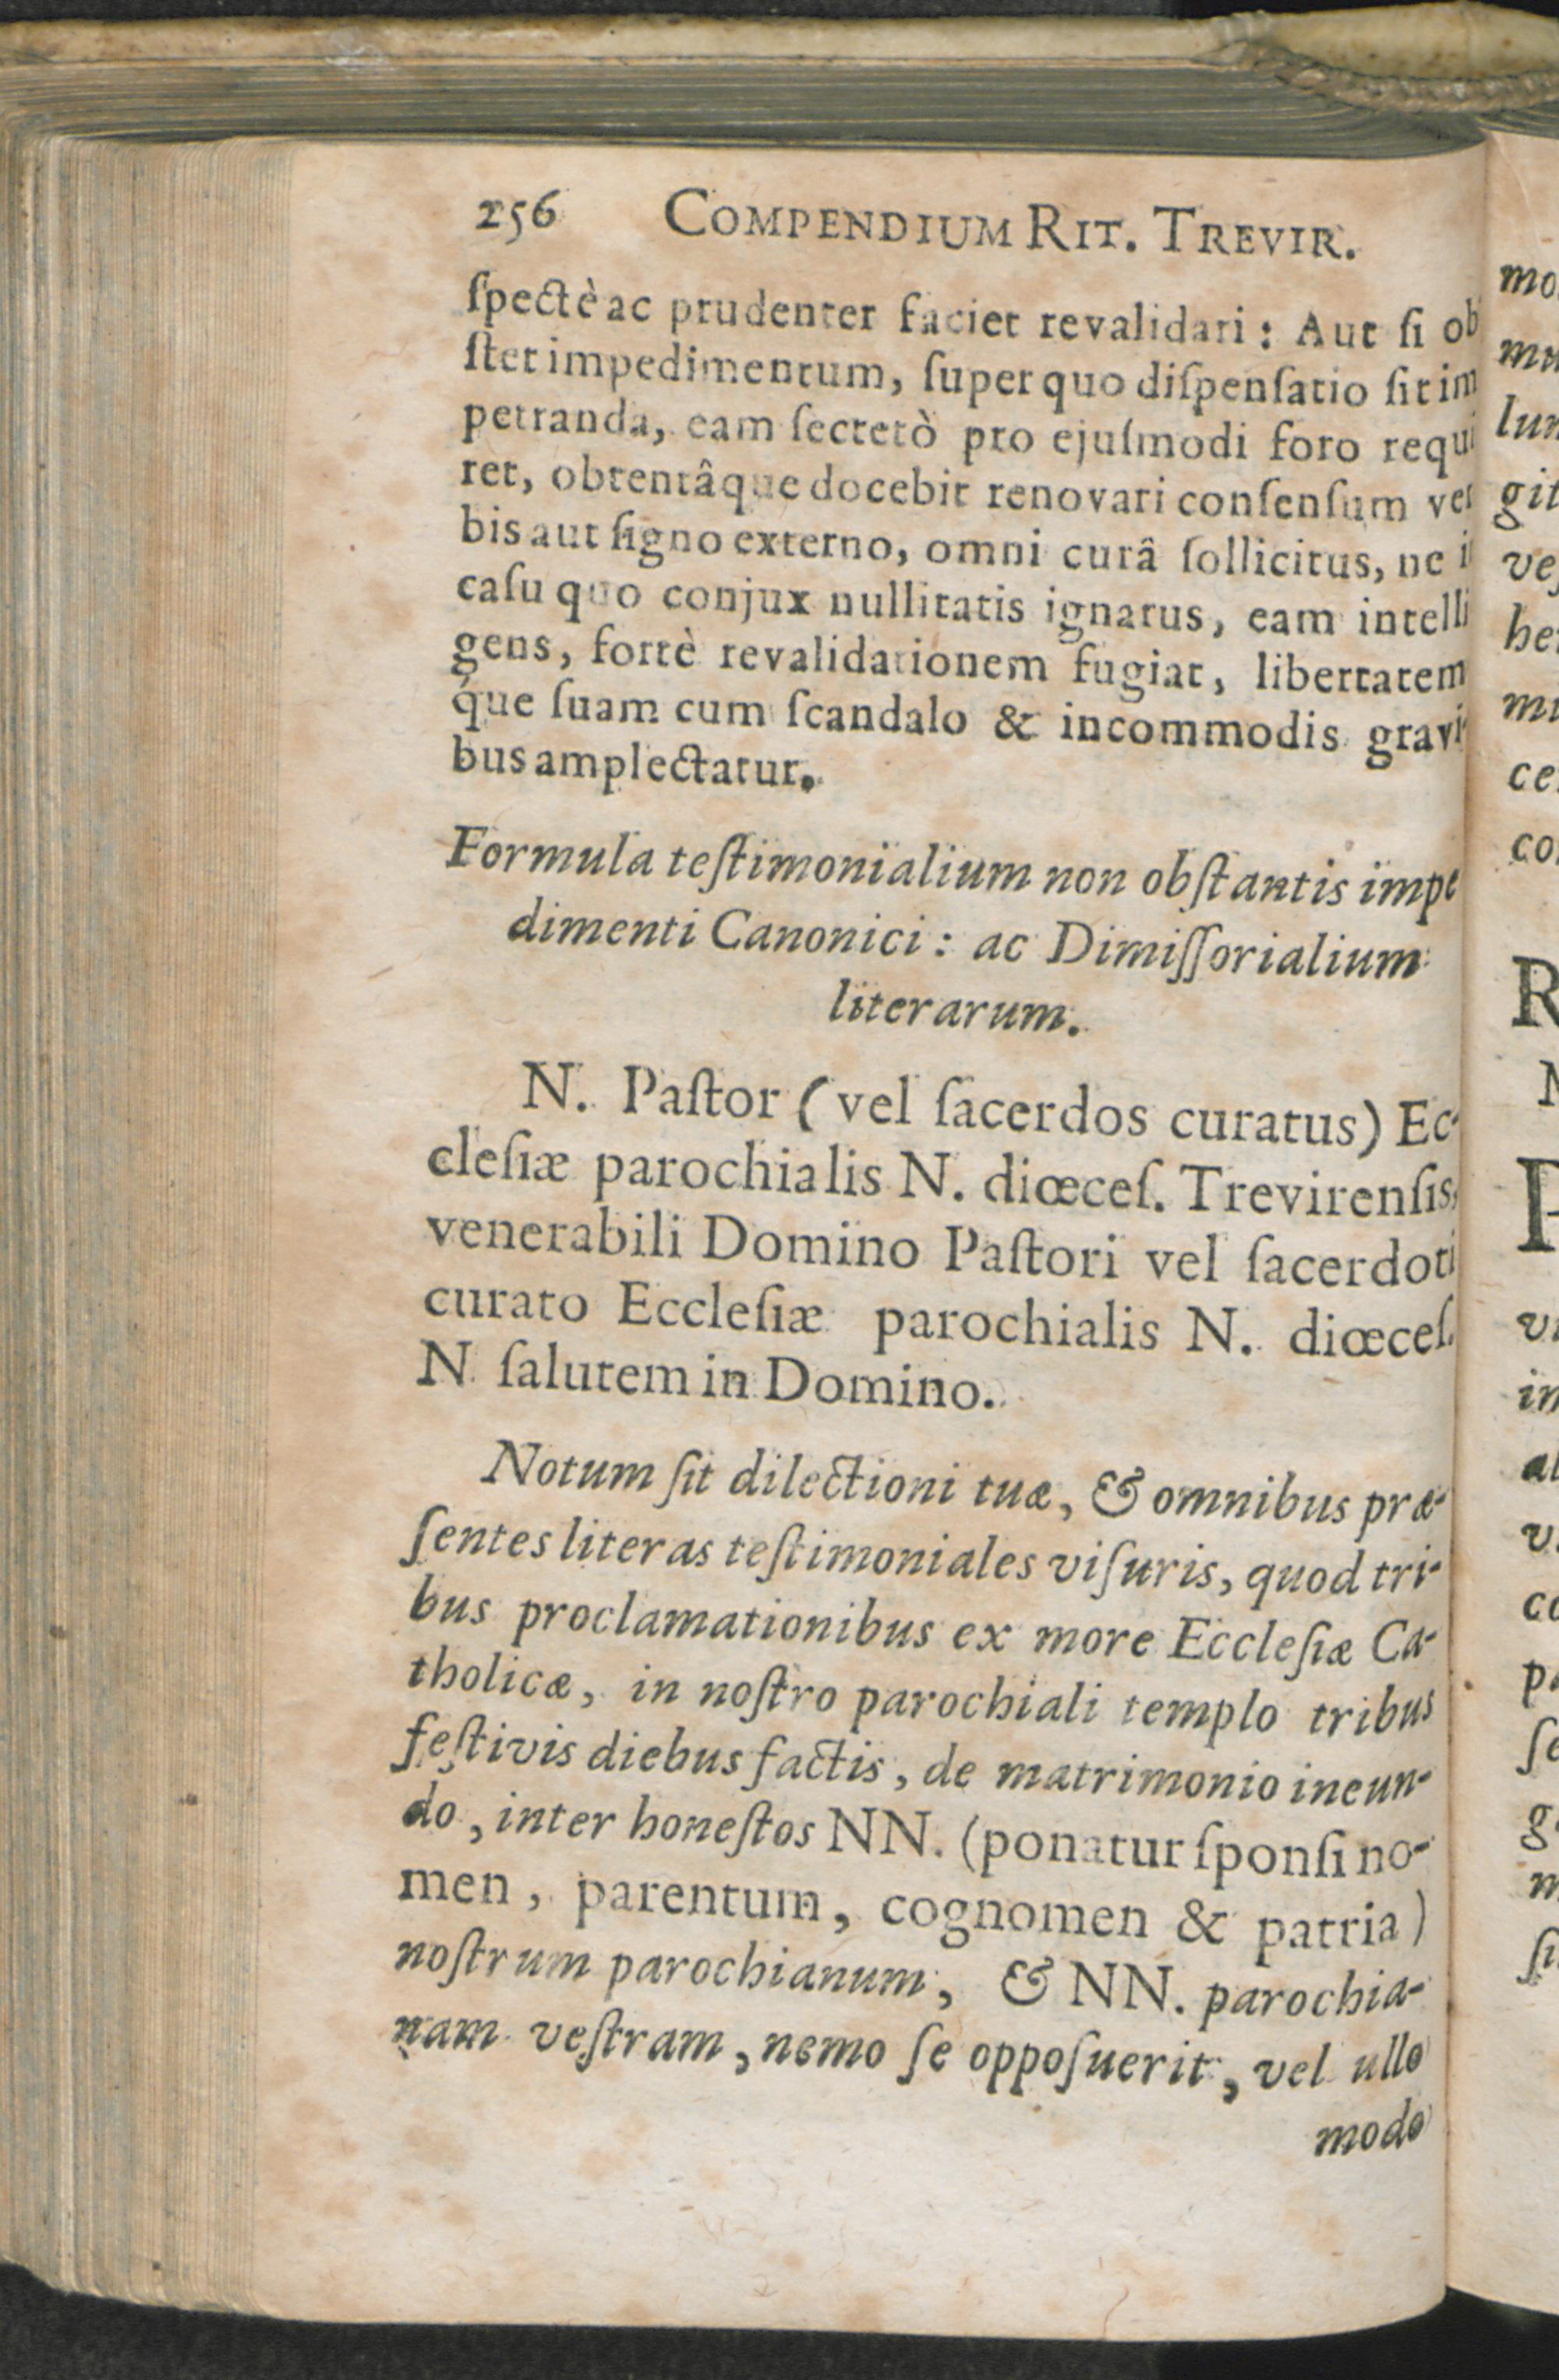 256 COMPENDIUM RIT. TREVIR.
ſpectè ac prudenter faciet revalidari: Aut ſi ob
ſtet impedimentum, ſuper quo diſpenſatio ſit im
petranda, eam ſecretò pro ejuſmodi foro requi
ret, obtentâque docebit renovari conſenſum ver
bis aut ſigno externo, omni curâ ſollicitus, ne i
caſu quo conjux nullitatis ignarus, eam intelli
gens, fortè revalidationem fugiat, libertatem
que ſuam cum ſcandalo & incommodis gravi
bus amplectatur.
Formula teſtimonialium non obſtantis impe
dimenti Canonici: ac Dimiſſorialium
literarum.
N. Paſtor (vel ſacerdos curatus) Ec-
cleſiæ parochialis N. diœceſ. Trevirenſis,
venerabili Domino Paſtori vel ſacerdoti
curato Eccleſiæ parochialis N. diœceſ.
N ſalutem in Domino.
Notum ſit dilectioni tuæ, & omnibus præ-
ſentes literas teſtimoniales viſuris, quod tri-
bus proclamationibus ex more Eccleſiæ Ca-
tholicæ, in noſtro parochiali templo tribus
feſtivis diebus factis, de matrimonio ineun-
do, inter honeſtos NN. (ponatur ſponſi no-
men, parentum, cognomen & patria)
noſtrum parochianum, & NN. parochia-
nam veſtram, nemo ſe oppoſuerit, vel ullo
modo